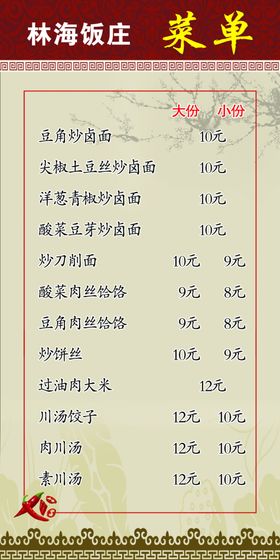 林海饭庄 菜单
大份 小份
豆角炒卤面 10元
尖椒土豆丝炒卤面 10元
洋葱青椒炒卤面 10元
酸菜豆芽炒卤面 10元
炒刀削面 10元 9元
酸菜肉丝饸饹 9元 8元
豆角肉丝饸饹 9元 8元
炒饼丝 10元 9元
过油肉大米 12元
川汤饺子 12元 10元
肉川汤 12元 10元
素川汤 12元 10元